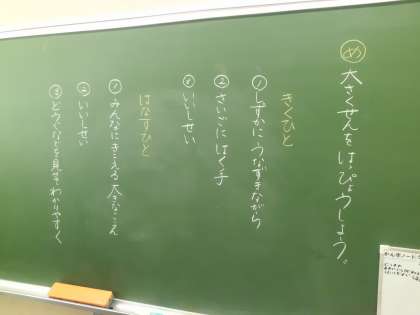 め 大さくせんをはっぴょうしよう。
きくひと
① しずかにうなずきながら
② さいごにはく手
③ いいしせい
はなすひと
① みんなにきこえる大きなこえ
② いいしせい
③ どうぐなどを見せてわかりやすく
かん字ノート